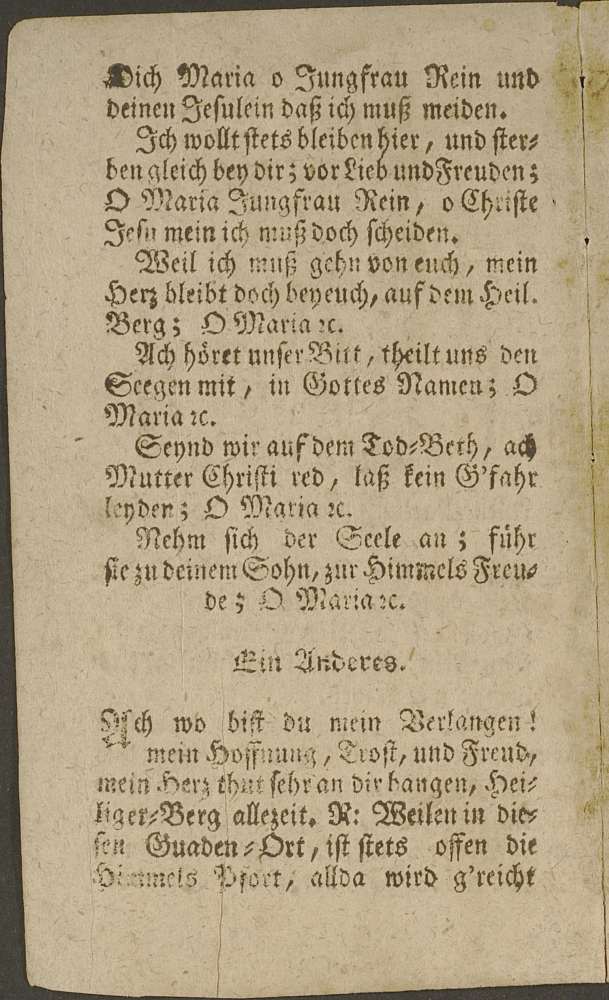 Dich Maria o Jungfrau Rein und
deinen Jesulein daß ich muß meiden.
Ich wollt stets bleiben hier, und ster⸗
ben gleich bey dir; vor Lieb und Freuden;
O Maria Jungfrau Rein, o Christe
Jesu mein ich muß doch scheiden.
Weil ich muß gehn von euch, mein
Herz bleibt doch bey euch, auf dem Heil.
Berg; O Maria ꝛc.
Ach höret unser Bitt, theilt uns den
Seegen mit, in Gottes Namen; O
Maria ꝛc.
Seynd wir auf dem Tod⸗Beth, ach
Mutter Christi red, laß kein G'fahr
leyden; O Maria ꝛc.
Nehm sich der Seele an; führ
sie zu deinem Sohn, zur Himmels Freu⸗
de; O Maria ꝛc.
Ein Anderes.
Ach wo bist du mein Verlangen!
mein Hoffnung, Trost, und Freud,
mein Herz thut sehr an dir hangen, Hei⸗
liger⸗Berg allezeit. R: Weilen in die⸗
sen Guaden⸗Ort, ist stets offen die
Himmels Pfort, allda wird g'reicht